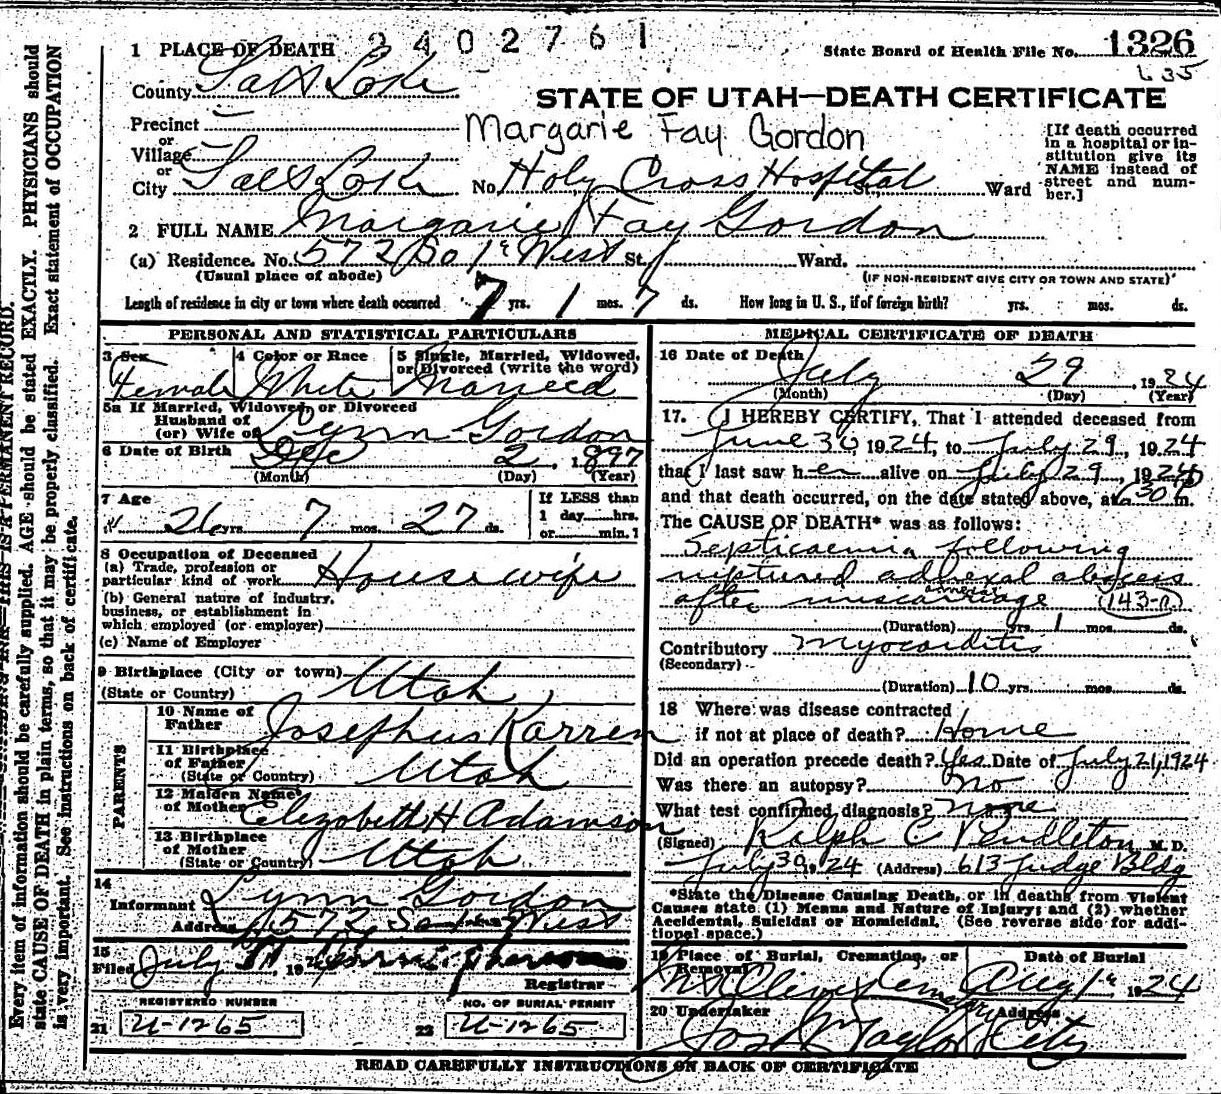 2402761
1 PLACE OF DEATH
State Board of Health File No. 1326
635
County Salt Lake
STATE OF UTAH—DEATH CERTIFICATE
Precinct
Margarie Fay Gordon
or
Village
or
City Salt Lake No. Holy Cross Hospital St., Ward
[If death occurred
in a hospital or in-
stitution give its
NAME instead of
street and num-
ber.]
2 FULL NAME Margarie Fay Gordon
(a) Residence. No. 572 So 1st West St. Ward.
(Usual place of abode) (IF NON-RESIDENT GIVE CITY OR TOWN AND STATE)
Length of residence in city or town where death occurred 7 yrs. 1 mos. 7 ds. How long in U. S., if of foreign birth? yrs. mos. ds.
PERSONAL AND STATISTICAL PARTICULARS
3 Sex
Female
4 Color or Race
White
5 Single, Married, Widowed,
or Divorced (write the word)
Married
5a If Married, Widowed, or Divorced
Husband of
(or) Wife of Lynn Gordon
6 Date of Birth Dec 2, 1897
(Month) (Day) (Year)
7 Age
26 yrs. 7 mos. 27 ds.
If LESS than
1 day......hrs.
or......min. ?
8 Occupation of Deceased
(a) Trade, profession or
particular kind of work Housewife
(b) General nature of industry,
business, or establishment in
which employed (or employer)
(c) Name of Employer
9 Birthplace (City or town)
(State or Country) Utah
PARENTS
10 Name of
Father Josephus Karren
11 Birthplace
of Father
(State or Country) Utah
12 Maiden Name
of Mother Elizabeth H Adamson
13 Birthplace
of Mother
(State or Country) Utah
14
Informant Lynn Gordon
Address 572 So 1st West
15
Filed July 31, 192
Registrar
REGISTERED NUMBER
21 U-1265
NO. OF BURIAL PERMIT
22 U-1265
MEDICAL CERTIFICATE OF DEATH
16 Date of Death July 29, 1924
(Month) (Day) (Year)
17. I HEREBY CERTIFY, That I attended deceased from
June 30 1924, to July 29, 1924
that I last saw her alive on July 29, 1924
and that death occurred, on the date stated above, at 6:30 P m.
The CAUSE OF DEATH* was as follows:
Septicaemia following
ruptured adnexal abscess
after miscarriage 143-a
(Duration) yrs. 1 mos. ds.
Contributory Myocarditis
(Secondary)
(Duration) 10 yrs. mos. ds.
18 Where was disease contracted
if not at place of death? Home
Did an operation precede death? Yes Date of July 21, 1924
Was there an autopsy? No
What test confirmed diagnosis? none
(Signed) Ralph C Pendleton, M. D.
July 30 1924 (Address) 613 Judge Bldg
*State the Disease Causing Death, or in deaths from Violent
Causes state (1) Means and Nature of Injury; and (2) whether
Accidental, Suicidal or Homicidal. (See reverse side for addi-
tional space.)
19 Place of Burial, Cremation, or
Removal
Mt Olivet Cemetery
Date of Burial
Aug 1st 1924
20 Undertaker
Jos Wm Taylor
Address
City
READ CAREFULLY INSTRUCTIONS ON BACK OF CERTIFICATE
THIS IS A PERMANENT RECORD.
Every item of information should be carefully supplied. AGE should be stated EXACTLY. PHYSICIANS should
state CAUSE OF DEATH in plain terms, so that it may be properly classified. Exact statement of OCCUPATION
is very important. See instructions on back of certificate.